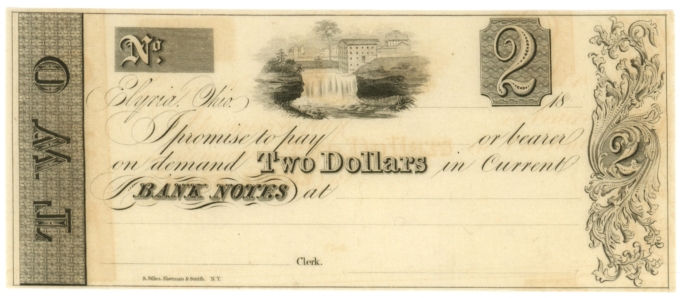 TWO
No.
2
Elyria, Ohio, 18
I promise to pay or bearer
on demand Two Dollars in Current
BANK NOTES at
Clerk.
2
& Smith. N.Y.